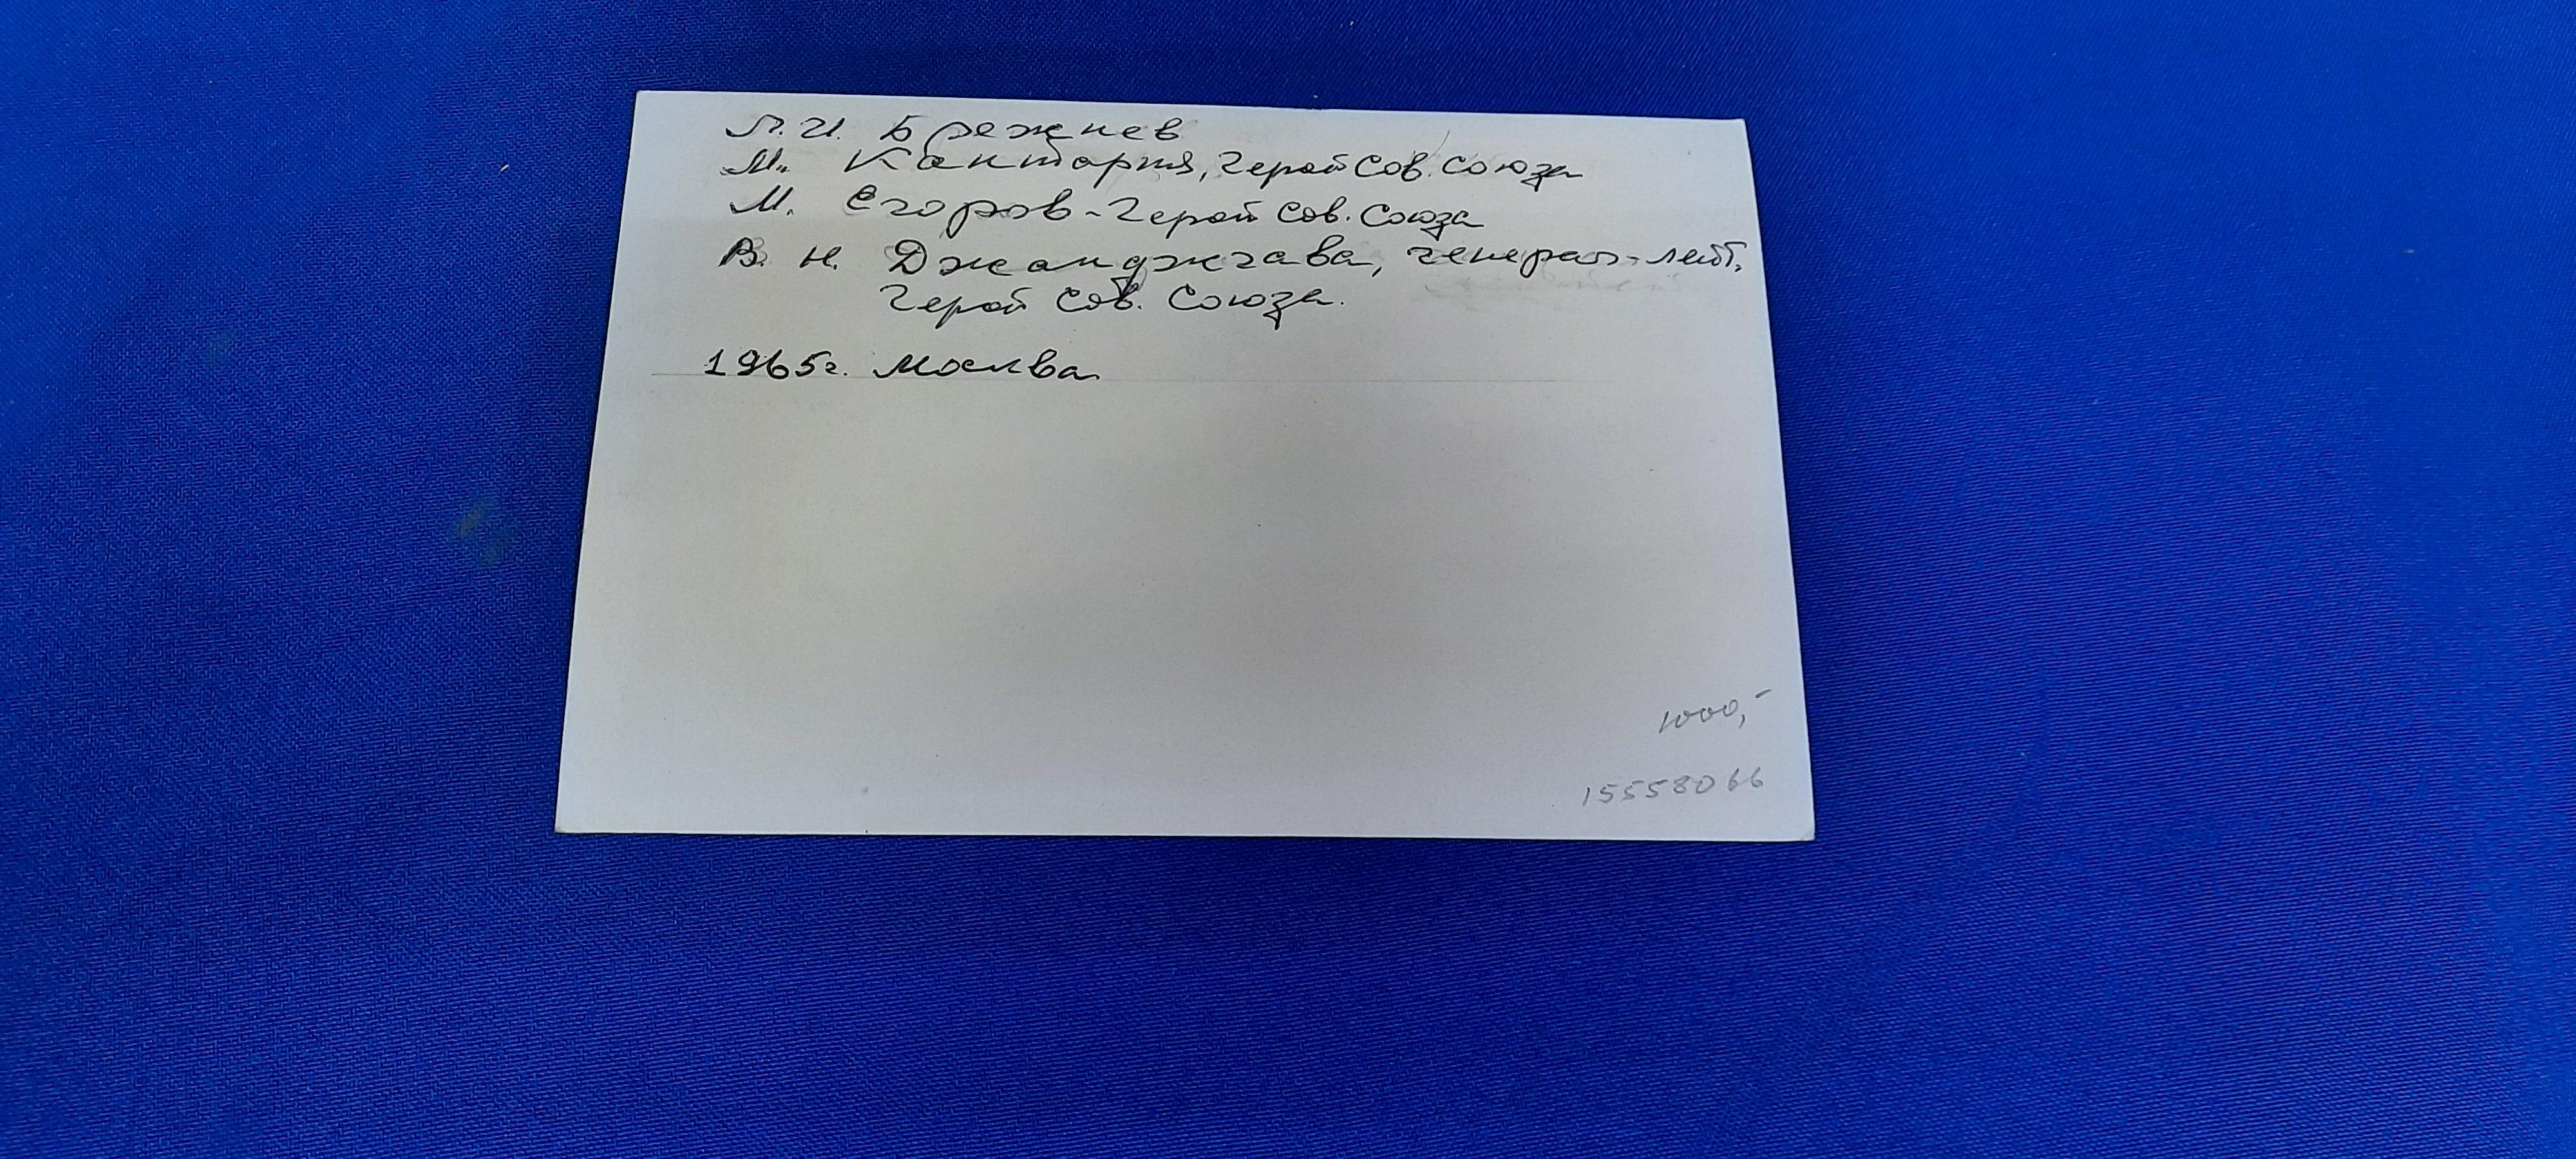 Л.И. Брежнев
М. Кантария, Герой Сов. Союза
М. Егоров - Герой Сов. Союза
В. Н. Джанджгава, генерал-лейт.
Герой Сов. Союза.
1965г. Москва
1000,-
15558066